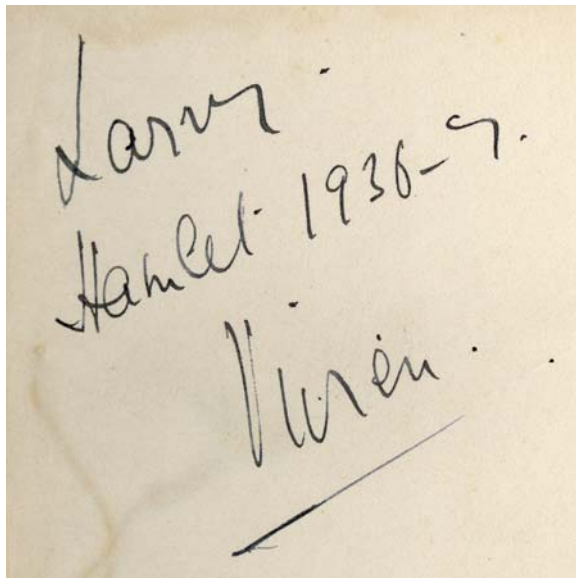 Larry.
Hamlet 1936-7.
Vivien.